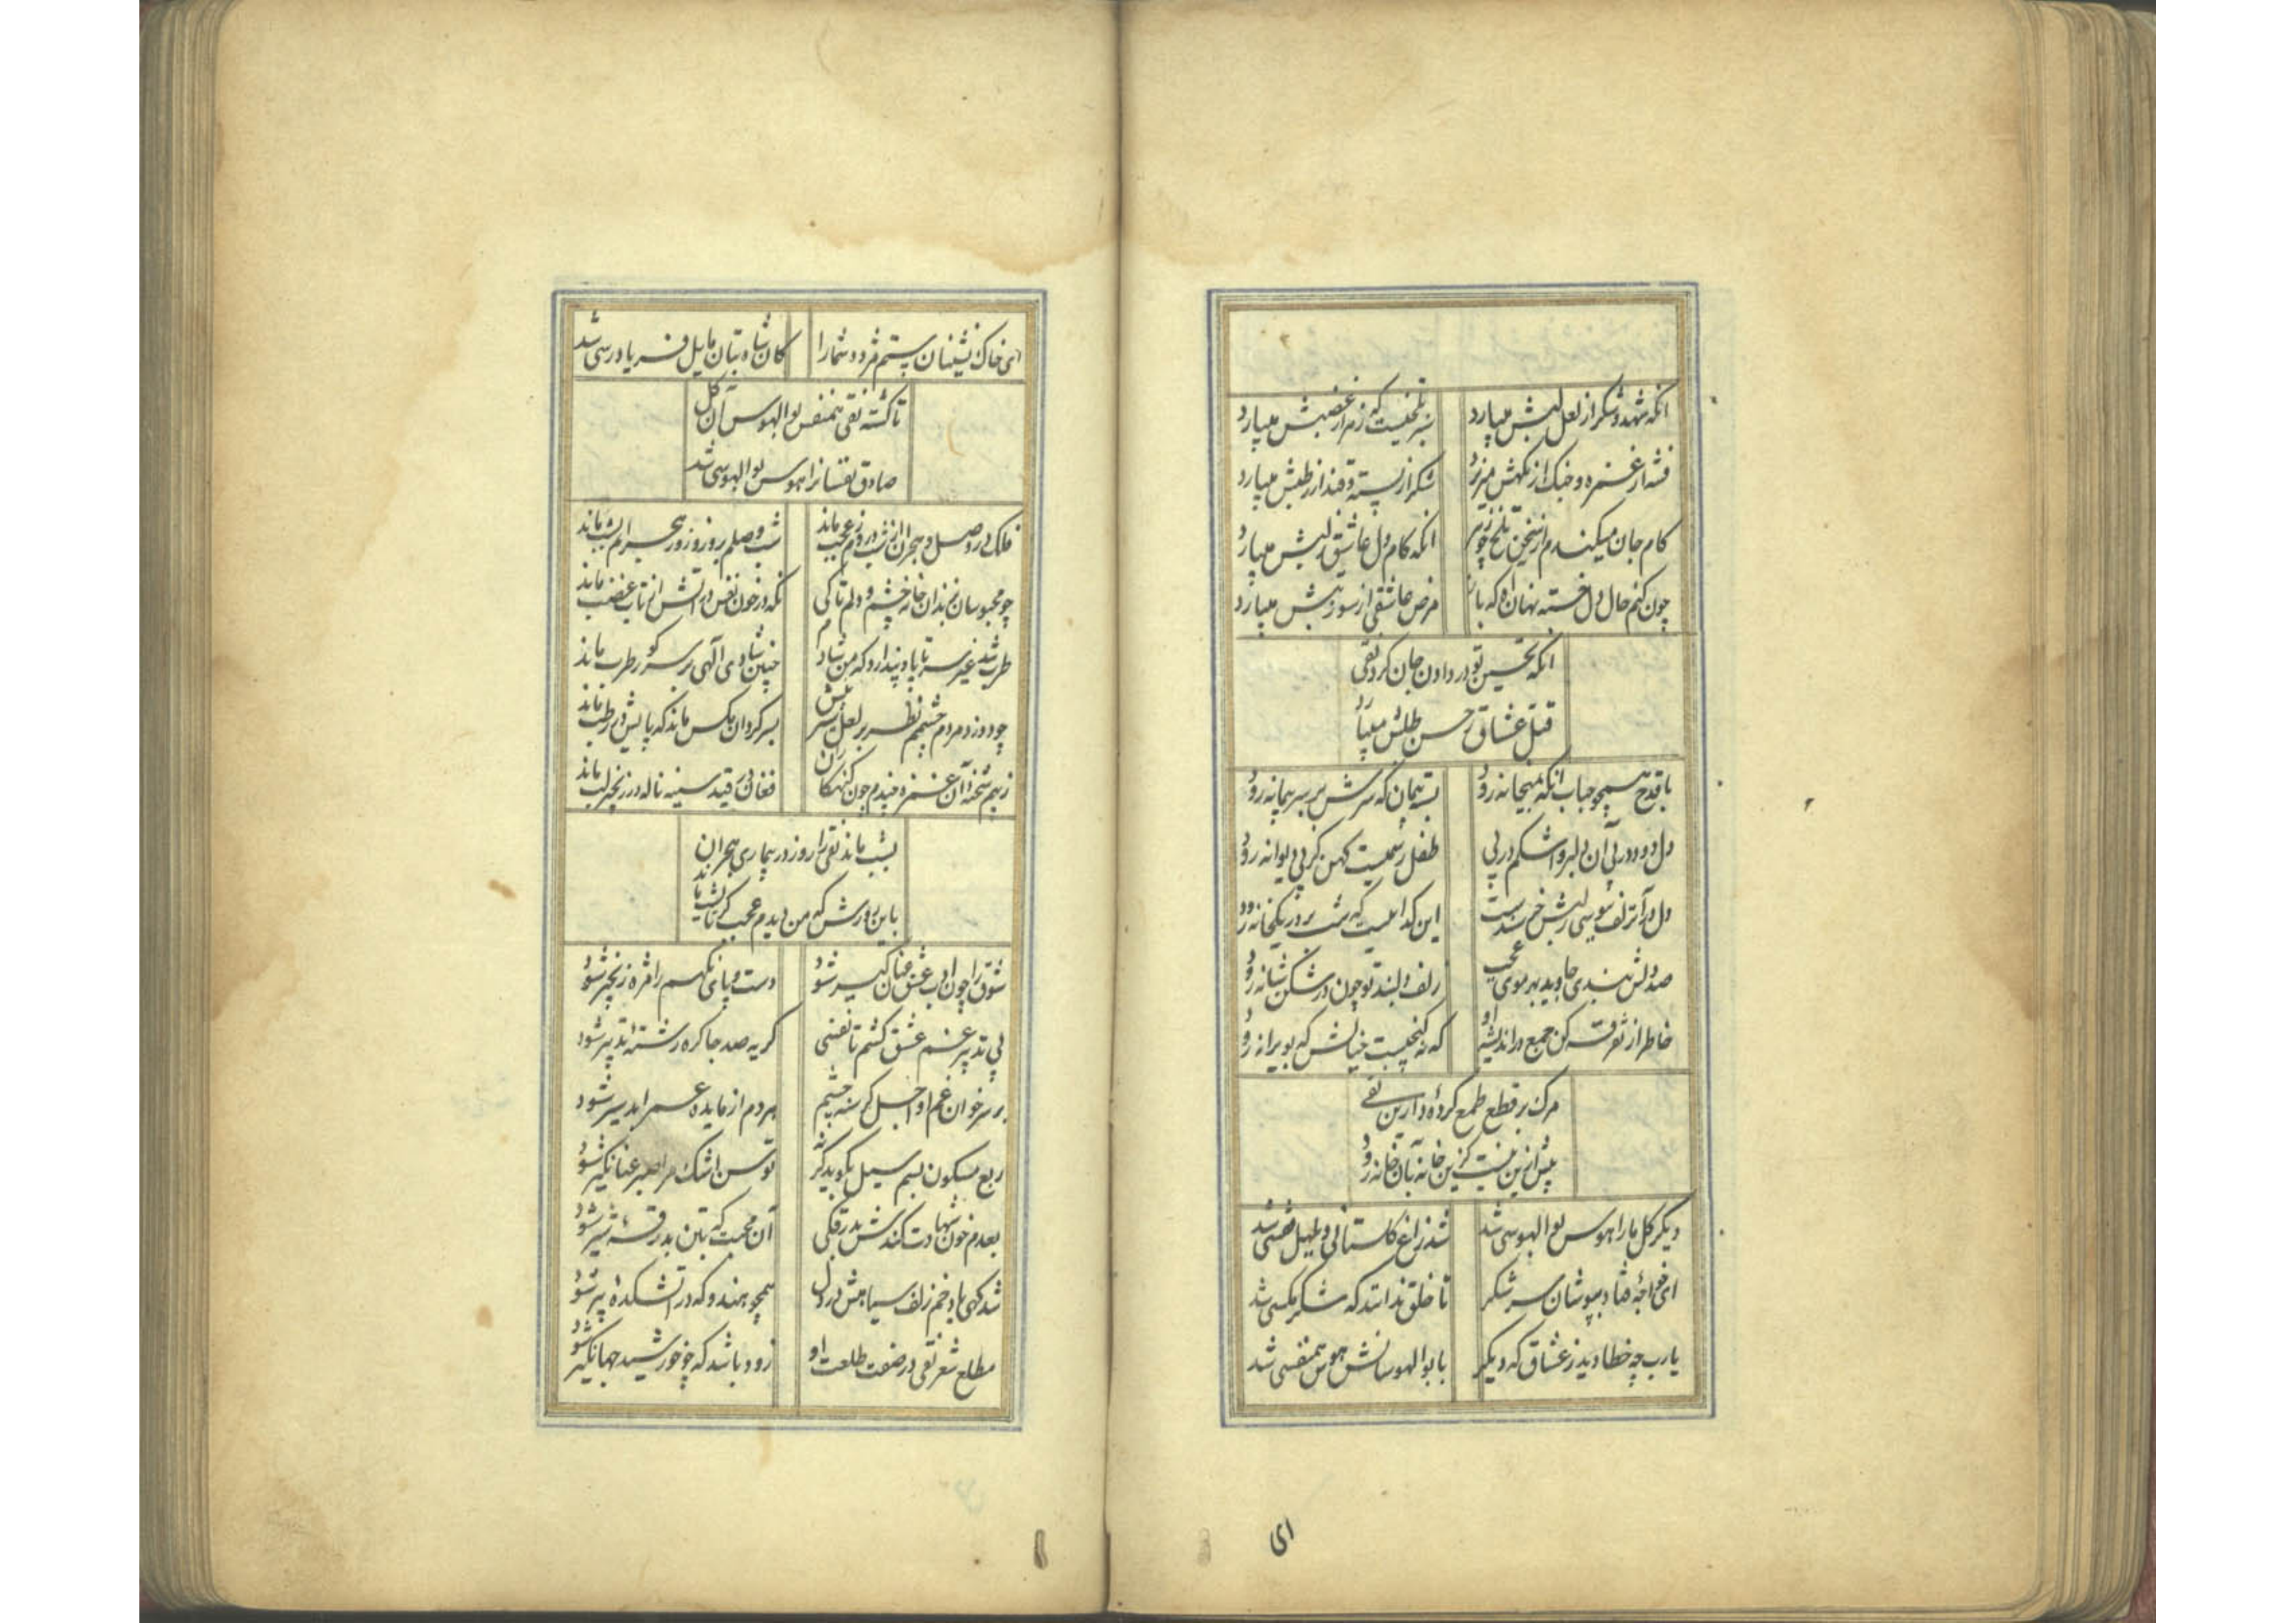 انکه شهد و شکر از لعل لبش میبارد
نیز تلخیست که زهر از غضبش میبارد
فتنه از غمزه و جنک از نکهش میریزد
شکر از پسته و قند از رطبش میبارد
کام جان میکندم از سخن تلخ چو زهر
انکه کام دل عاشق ز لبش میبارد
چون کنم حال دل خسته نهان زانکه
مرض عاشقی از سوز تبش میبارد
انکه تحسین تو در دادن جان کرد تقی
قتل عشاق ز حسن طلبش میبارد
با قدح همچو حباب انکه بمیخانه رود
بسته پیمان که سرش بر سر پیمانه رود
دل دود در پی آن دلبر و اشکم در پی
طفل رسمیست کهن کز پی دیوانه رود
دل در آن زلف ببوسی ز لبش خرسندست
این کداییست که شب بر در یکخانه رود
صد دلش بندی جاوید بهر موی عجب
زلف دلبند تو چون در شکن شانه رود
خاطر از تفرقه کن جمع در اندیشه او
که نه کنجیست خیالش که بویرانه رود
مرک بر قطع طمع کرده دارین تقی
پیش ازین نیست کزین خانه بآن خانه رود
دیکر کل ما را هوس بوالهوسی شد
شد زاغ کلستانی و بلبل قفسی شد
ای خواجه قناد بپوشان سر شکر
تا خلق ندانند که شکر مکسی شد
یارب چه خطا دید ز عشاق که دیکر
با بوالهوسانش هوس همنفسی شد
ای
ای خاک نشینان ستم مژده شما را
کان شاه بتان مایل فریادرسی شد
تا کشته تقی همنفس بوالهوس آن کل
صادق نفسانرا هوس بوالهوسی شد
فلک در وصل و هجران از شب و روزم عجب ماند
شب وصلم بروز و روز هجرانم بشب ماند
چو محبوسان بزندان خانه خشم و دلم تا کی
نکه در خون نفس در آتش از تاب غضب ماند
طرب شد غیر سر تا پا و پندارد که من شادم
چنین شادی الهی بر سر کور طرب ماند
چو دوزد مردم چشمم نظر بر لعل سربش
بسرکردان مکس ماند که پایش در رطب ماند
ز بیم شحنه آن غمزه فیدم چون کنهکاران
فغان در قید سینه ناله در زنجیر لب ماند
بشب ماند تقی را روز در بیماری هجران
باین روزش که من دیدم عجب کر تا بشب ماند
شوق را چون ادب عشق عنان کیر شود
دست و پای نکهم را مژه زنجیر شود
پی تدبیر غم عشق کشم تا نفسی
کریه صد جا کره رشته تدبیر شود
بر سر خوان غم او اجل کرسنه چشم
هر دم از مایده عمر ابد سیر شود
ربع مسکون بسم سیل بکوبد کرنه
توسن اشک مرا صبر عنانکیر شود
بعدم خون شهادت کندش بدرقکی
آن محبت که بتن بدرقه شیر شود
شد کهی یاد خم زلف سیاهش در دل
همچو هندو که در آتشکده پیر شود
مطلع شعر تقی در صفت طلعت او
زود باشد که چو خورشید جهانکیر شود